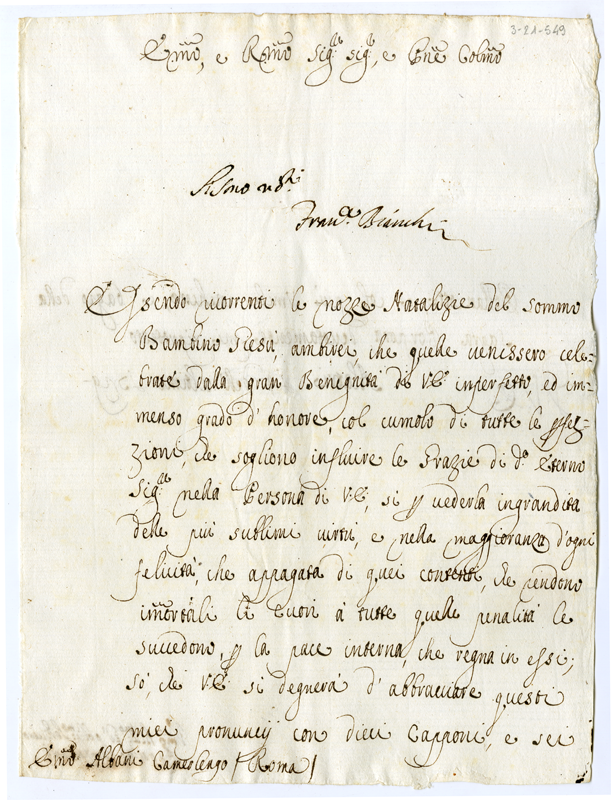 3-21-549
Em̃o, e Rm̃o Sig.re Sig.re, e Pne Colmo
Fran.co Bianchi
Essendo ricorrenti le nozze Natalizie del sommo
Bambino Giesù, ambirei che quelle venissero cele-
brate dalla gran Benignità di V.E. in perfetto, ed im-
menso grado d'honore, col cumolo di tutte le
zioni, che sogliono influire le Grazie di d.o Eterno
Sig.re nella Persona di V.E., si p vederla ingrandita
delle più sublimi virtù, e nella maggioranza d'ogni
felicità, che appagata di quei contenti, che rendono
immortali li Cuori à tutte quelle penalità le
succedono, p la pace interna, che regna in essi;
sò, che V.E. si degnerà d'abbracciare questi
miei pronuncij con dieci Capponi, e sei
Em̃o Albani Camerlengo (Roma)